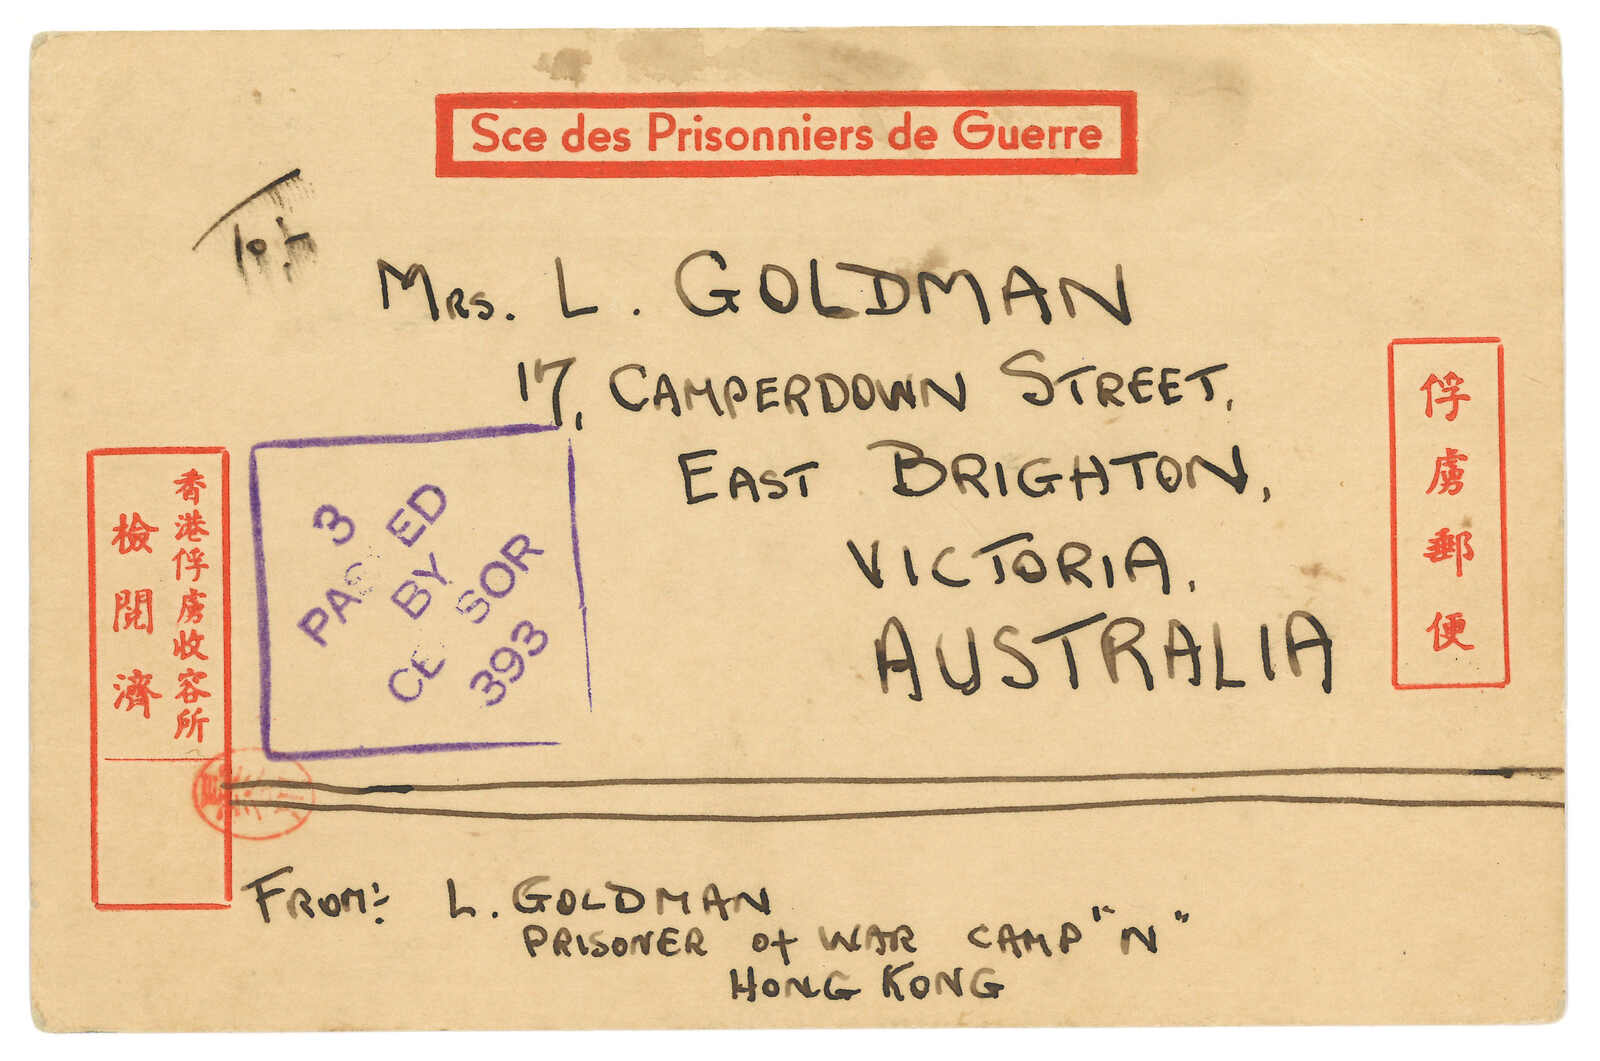 Sce des Prisonniers de Guerre
To:-
MRS. L. GOLDMAN
17, CAMPERDOWN STREET,
EAST BRIGHTON,
VICTORIA,
AUSTRALIA
俘虜郵便
香港俘虜收容所
檢閲濟
3
PASSED
BY
CENSOR
393
FROM:- L. GOLDMAN
PRISONER of WAR CAMP "N"
HONG KONG